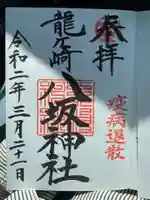 奉拝
疫病退散
龍ヶ崎
八坂神社
令和二年三月二十一日